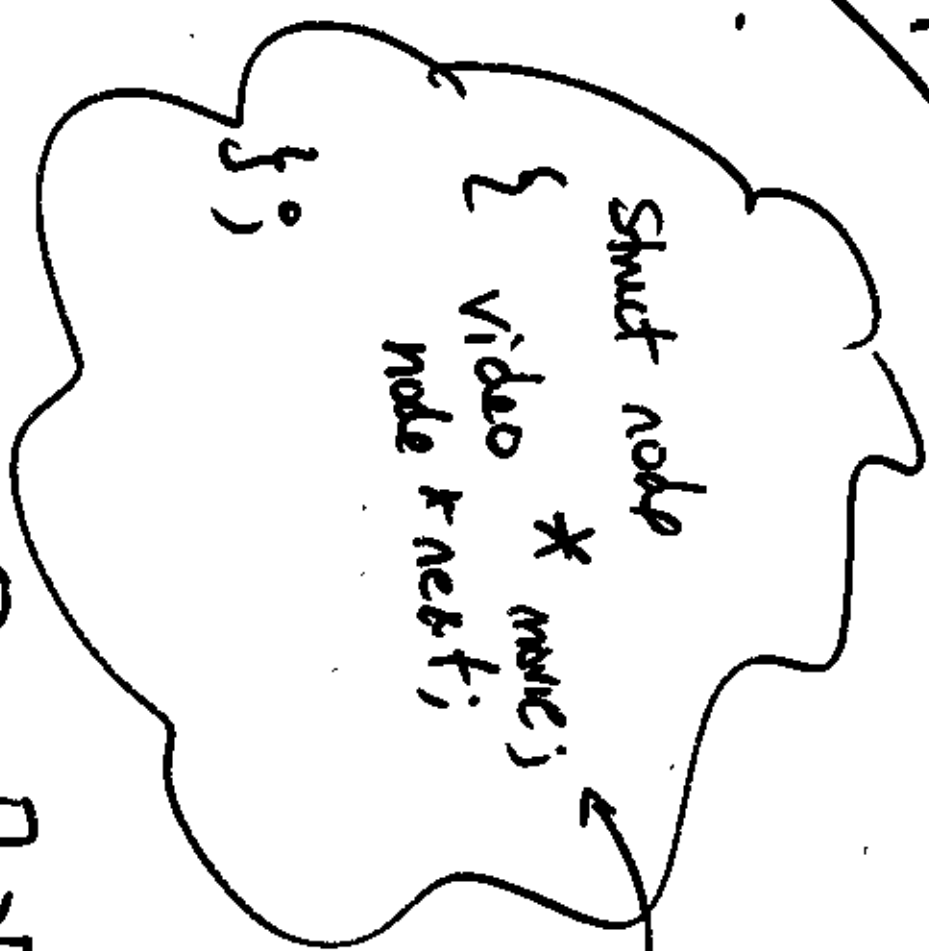 Struct node
{
video * movie;
node * next;
};